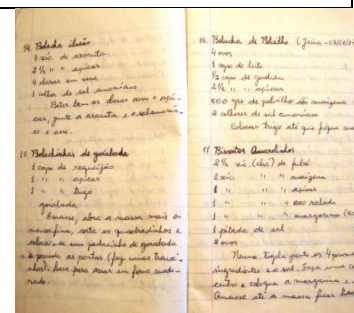 14. Bolacha ilusão
1 xíc. de araruta
2 ½ " " açúcar
4 claras em neve
1 colher de sal amoníaco
Bater bem as claras com o açú-
car, junte a araruta e o sal amonía-
co e asse.
15. Bolachinhas de goiabada
1 copo de requeijão
1 " " açúcar
1 " " trigo
goiabada
Amasse, abra a massa mais ou
menos fina, corte os quadradinhos e
coloca-se um pedacinho de goiabada
e prende as pontas (faz umas trouxi-
nhas), leve para assar em forno mode-
rado.
16. Bolacha de Polvilho (
4 ovos
1 copo de leite
½ copo de gordura
2 ½ " " açúcar
800 grs de polvilho
2 colheres de sal amoníaco
Colocar trigo até que fique
17. Biscoitos Amarelinhos
2 ½ xíc. (chá) de fubá
2 xíc. " " maizena
1 " " " açúcar
1 " " " coco ralado
1 " " " margarina
1 pitada de sal
2 ovos
Numa tigela junte os 4
ingredientes e o sal. Faça uma
centro e coloque a margarina e
Amasse até a massa ficar